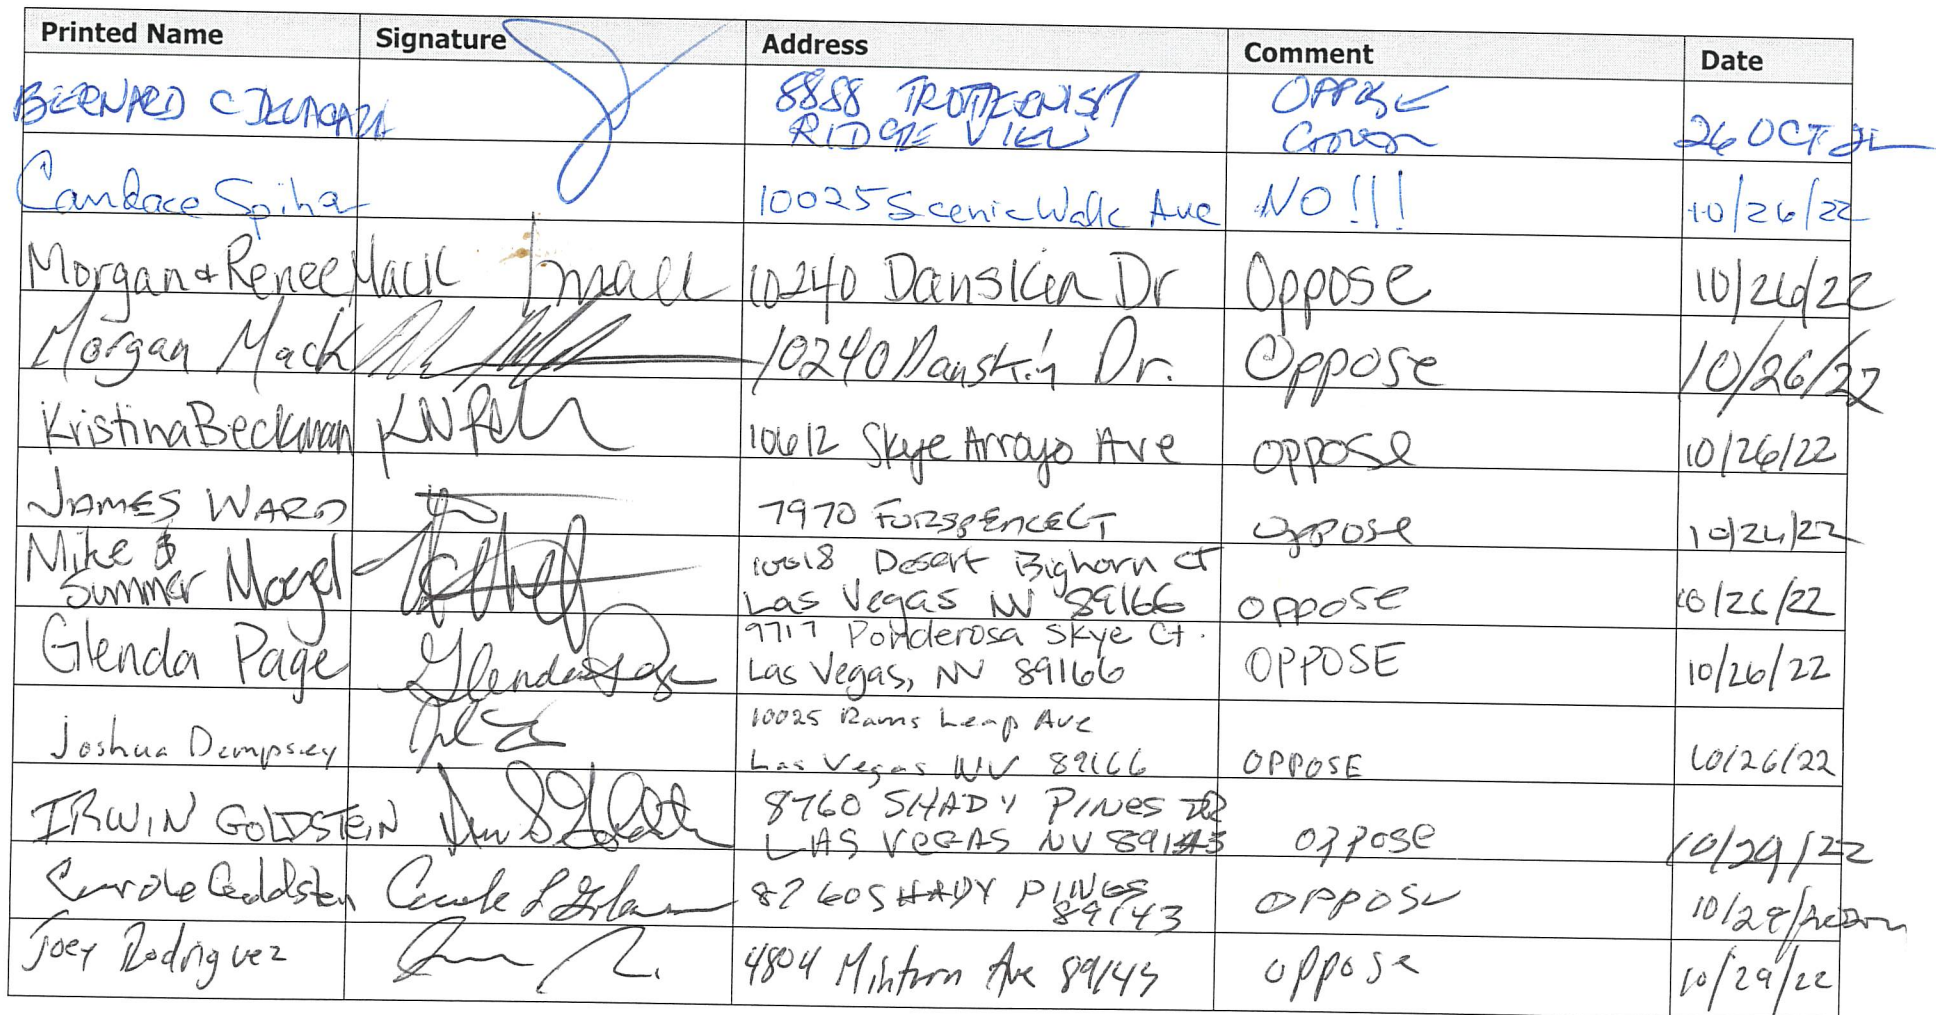 Printed Name Signature Address Comment Date
BERNARD C 8888 OPPOSE
RIDGE VIEW 26 OCT
Candace 10025 Scenic Walk Ave NO!!! 10/26/22
Morgan & Renee Mack 10240 Danskin Dr Oppose 10/26/22
Morgan Mack 10240 Danskin Dr. Oppose 10/26/22
Kristina Beckman 10612 Skye Arroyo Ave oppose 10/26/22
JAMES WARD 7970 oppose
Mike & 10018 Desert Bighorn Ct
Summer Las Vegas NV 89166 oppose 10/26/22
Glenda Page Glenda Page 9717 Ponderosa Skye Ct.
Las Vegas, NV 89166 OPPOSE 10/26/22
Joshua Dempsey 10025 Rams Leap Ave
Las Vegas NV 89166 OPPOSE 10/26/22
IRWIN GOLDSTEIN 8760 SHADY PINES DR
LAS VEGAS NV 89143 oppose 10/29/22
Carole Goldstein 8760 SHADY PINES
89143 OPPOSE
Joey Rodriguez 4804 Ave oppose 10/29/22